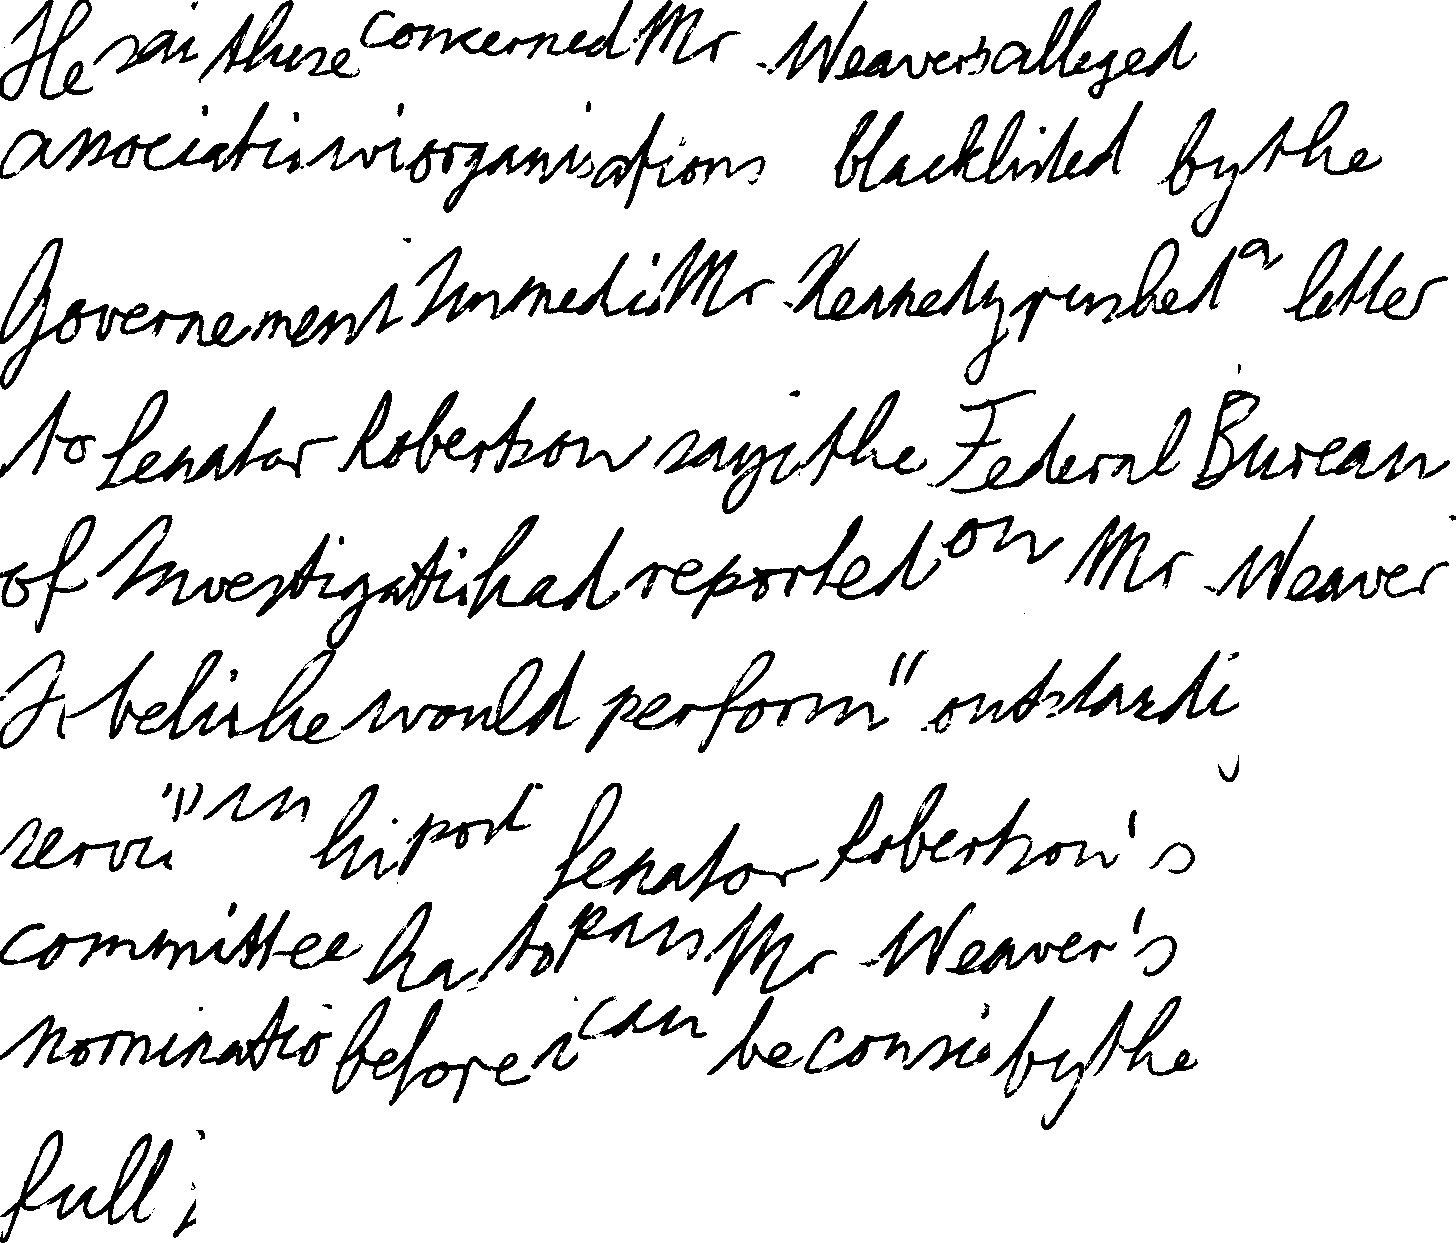 He sai these concerned Mr Weaver's alleged
associati wi organisations blacklisted by the
Governement Immedi Mr Kennedy rushed a letter
to Senator Robertson sayi the Federal Bureau
of Investigati had reported on Mr Weaver
It beli he would perform "outstandi
servi" in hi post Senator Robertson's
committee ha to pass Mr Weaver's
nominatio before i can be consi by the
full